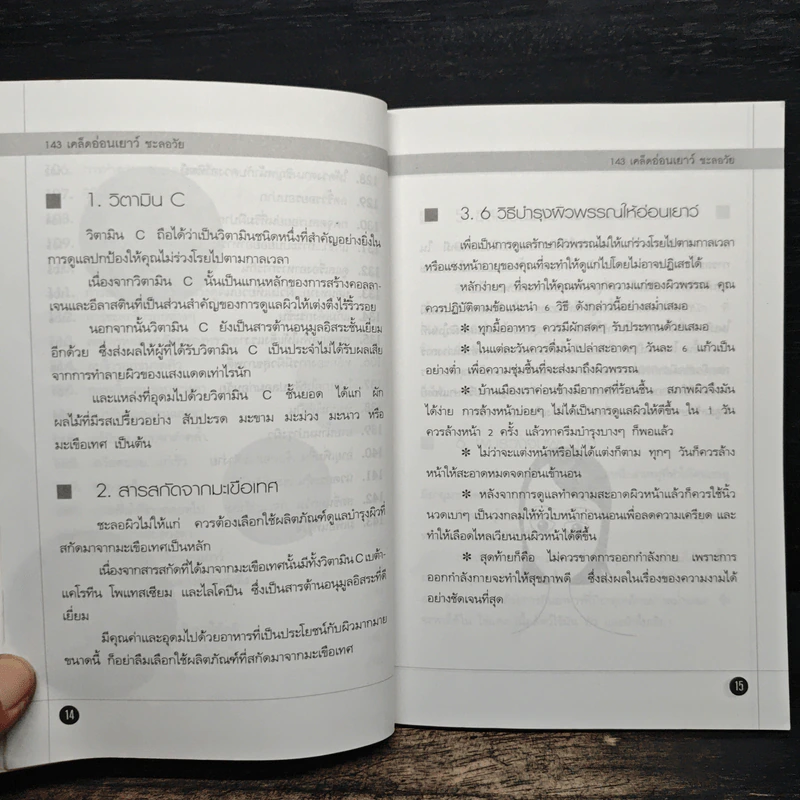 143 เคล็ดอ่อนเยาว์ ชะลอวัย
1. วิตามิน C
วิตามิน C ถือได้ว่าเป็นวิตามินชนิดหนึ่งที่สำคัญอย่างยิ่งใน
การดูแลปกป้องให้คุณไม่ร่วงโรยไปตามกาลเวลา
เนื่องจากวิตามิน C นั้นเป็นแกนหลักของการสร้างคอลลา-
เจนและอีลาสตินที่เป็นส่วนสำคัญของการดูแลผิวให้เต่งตึงไร้ริ้วรอย
นอกจากนั้นวิตามิน C ยังเป็นสารต้านอนุมูลอิสระชั้นเยี่ยม
อีกด้วย ซึ่งส่งผลให้ผู้ที่ได้รับวิตามิน C เป็นประจำไม่ได้รับผลเสีย
จากการทำลายผิวของแสงแดดเท่าไรนัก
และแหล่งที่อุดมไปด้วยวิตามิน C ชั้นยอด ได้แก่ ผัก
ผลไม้ที่มีรสเปรี้ยวอย่าง สับปะรด มะขาม มะม่วง มะนาว หรือ
มะเขือเทศ เป็นต้น
2. สารสกัดจากมะเขือเทศ
ชะลอผิวไม่ให้แก่ ควรต้องเลือกใช้ผลิตภัณฑ์ดูแลบำรุงผิวที่
สกัดมาจากมะเขือเทศเป็นหลัก
เนื่องจากสารสกัดที่ได้มาจากมะเขือเทศนั้นมีทั้งวิตามิน C เบต้า-
แคโรทีน โพแทสเซียม และไลโคปีน ซึ่งเป็นสารต้านอนุมูลอิสระที่ดี
เยี่ยม
มีคุณค่าและอุดมไปด้วยอาหารที่เป็นประโยชน์กับผิวมากมาย
ขนาดนี้ ก็อย่าลืมเลือกใช้ผลิตภัณฑ์ที่สกัดมาจากมะเขือเทศ
14
143 เคล็ดอ่อนเยาว์ ชะลอวัย
3. 6 วิธีบำรุงผิวพรรณให้อ่อนเยาว์
เพื่อเป็นการดูแลรักษาผิวพรรณไม่ให้แก่ร่วงโรยไปตามกาลเวลา
หรือแซงหน้าอายุของคุณที่จะทำให้ดูแก่ไปโดยไม่อาจปฏิเสธได้
หลักง่ายๆ ที่จะทำให้คุณพ้นจากความแก่ของผิวพรรณ คุณ
ควรปฏิบัติตามข้อแนะนำ 6 วิธี ดังกล่าวนี้อย่างสม่ำเสมอ
* ทุกมื้ออาหาร ควรมีผักสดๆ รับประทานด้วยเสมอ
* ในแต่ละวันควรดื่มน้ำเปล่าสะอาดๆ วันละ 6 แก้วเป็น
อย่างต่ำ เพื่อความชุ่มชื้นที่จะส่งมาถึงผิวพรรณ
* บ้านเมืองเราค่อนข้างมีอากาศที่ร้อนชื้น สภาพผิวจึงมัน
ได้ง่าย การล้างหน้าบ่อยๆ ไม่ได้เป็นการดูแลผิวให้ดีขึ้น ใน 1 วัน
ควรล้างหน้า 2 ครั้ง แล้วทาครีมบำรุงบางๆ ก็พอแล้ว
* ไม่ว่าจะแต่งหน้าหรือไม่ได้แต่งก็ตาม ทุกๆ วันก็ควรล้าง
หน้าให้สะอาดหมดจดก่อนเข้านอน
* หลังจากการดูแลทำความสะอาดผิวหน้าแล้วก็ควรใช้นิ้ว
นวดเบาๆ เป็นวงกลมให้ทั่วใบหน้าก่อนนอนเพื่อลดความเครียด และ
ทำให้เลือดไหลเวียนบนผิวหน้าได้ดีขึ้น
* สุดท้ายก็คือ ไม่ควรขาดการออกกำลังกาย เพราะการ
ออกกำลังกายจะทำให้สุขภาพดี ซึ่งส่งผลในเรื่องของความงามได้
อย่างชัดเจนที่สุด
15